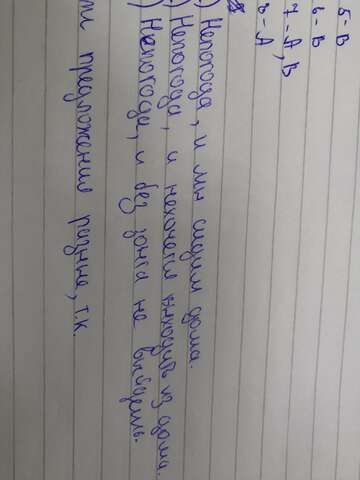 5 - В
6 - В
7 - А, В
8 - А
) Непогода, и мы сидим дома.
) Непогода, и нехочется выходить из дома.
) Непогода, и без зонта не выйдешь.
ти предложения разные, т.к.